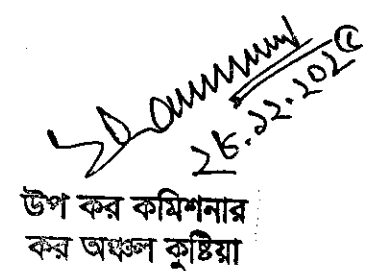 ২৮.১২.২০২৫
উপ কর কমিশনার
কর অঞ্চল কুষ্টিয়া